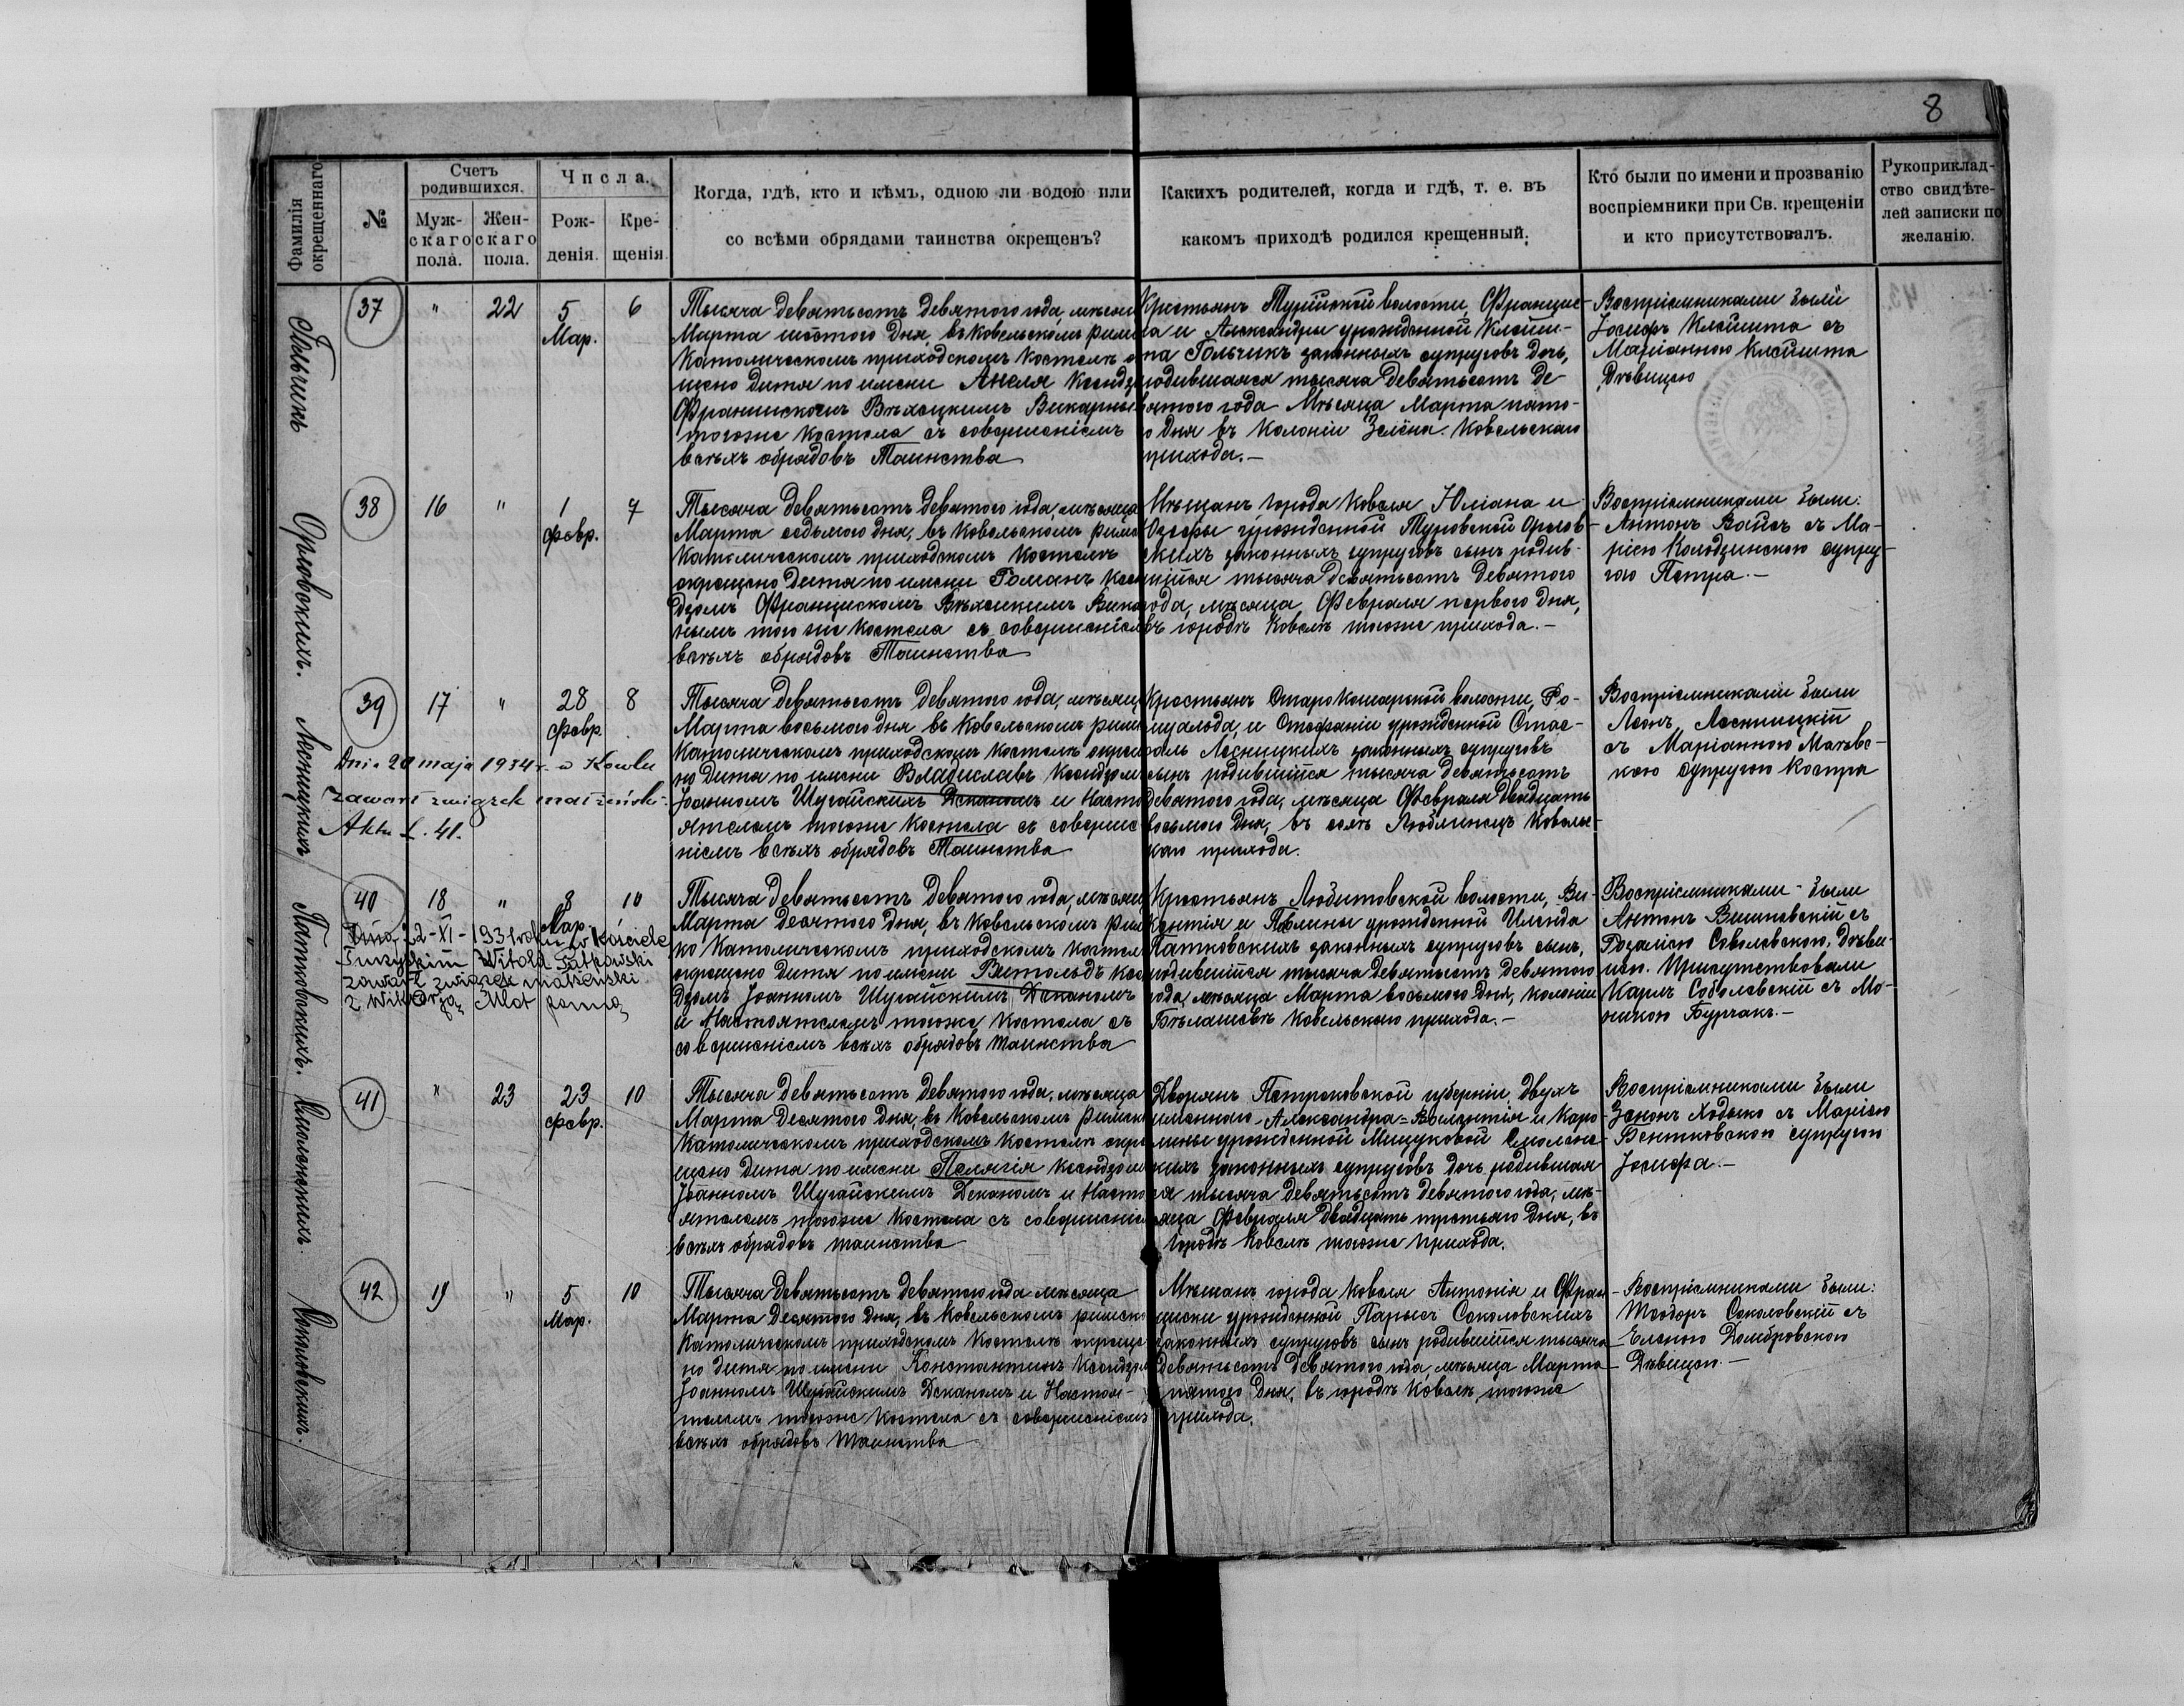 8
Фамилія окрещеннаго.
№
Счетъ родившихся.
Муж-
скаго
пола.
Жен-
скаго
пола.
Числа.
Рож-
денія.
Кре-
щенія.
Когда, гдѣ, кто и кѣмъ, одною ли водою или
со всѣми обрядами таинства окрещенъ?
Какихъ родителей, когда и гдѣ, т. е. въ
какомъ приходѣ родился крещенный.
Кто были по имени и прозванію
воспріемники при Св. крещеніи
и кто присутствовалъ.
Рукоприклад-
ство свидѣте-
лей записки по
желанію.
Гольчикъ
37 " 22 5 6
Мар.
Тысяча девятьсотъ девятого года, мѣсяца
Марта шестого дня, въ Ковельскомъ римско
Католическомъ приходскомъ костелѣ
щено дитя по имени Анеля Ксендзомъ
Францискомъ Викарнымъ
тогоже костела съ совершеніемъ
всѣхъ обрядовъ Таинства
Крестьянъ Турійской волости, Францис-
ка и Александры урожденной Клейш-
та Гольчикъ законныхъ супруговъ дочь,
родившаяся тысяча девятьсотъ де-
вятого года Мѣсяца Марта пято-
го дня въ Колоніи Зелёна Ковельскаго
прихода.—
Воспріемниками были
Іосифъ Клейшта съ
Маріанною Клейшта
Дѣвицею
Орловскихъ.
38 16 " 1 7
февр.
Тысяча девятьсотъ девятого года, мѣсяца
Марта седьмого дня, въ Ковельскомъ римско
Католическомъ приходскомъ костелѣ
окрещено дитя по имени Романъ Ксен
дзомъ Францискомъ Викар
нымъ того же костела съ совершеніемъ
всѣхъ обрядовъ Таинства
Мѣщанъ города Ковеля Юліана и
Іозефы урожденной Туровской Орлов-
скихъ законныхъ супруговъ сынъ родив-
шійся тысяча девятьсотъ девятого
года, мѣсяца Февраля первого дня,
въ городѣ Ковелѣ тогоже прихода.—
Воспріемниками были:
Антонъ Вайсъ съ Ма-
ріею Колодзинскою супру-
гою Петра.—
Лесницкихъ
39 17 " 28 8
февр.
Dnia 20 maja 1934 r. w Kowlu
zawarł związek małżeński.
Akt L. 41.
Тысяча девятьсотъ девятого года, мѣсяца
Марта восьмого дня въ Ковельскомъ римско
Католическомъ приходскомъ костелѣ окреще
но дитя по имени Владиславъ Ксендзомъ
Іоанномъ Шугайскимъ Деканомъ и Насто
ятелемъ тогоже костела съ соверше
ніемъ всѣхъ обрядовъ Таинства
Крестьянъ СтароКошарской волости, Ро-
муальда, и Стефаніи урожденной
Лесницкихъ законныхъ супруговъ
сынъ родившійся тысяча девятьсотъ
девятого года, мѣсяца Февраля двадцать
восьмого дня, въ селѣ Люблинецъ Ковель-
скаго прихода.
Воспріемниками были
Леонъ Лесницкій
съ Маріанною
кою супругою
Патковскихъ.
40 18 " 8 10
Мар.
Dnia 22-XI-1931 roku w kościele
Turzyskim Witold Patkowski
zawarł związek małżeński
z Wiktorją Młot panną
Тысяча девятьсотъ девятого года, мѣсяца
Марта десятого дня, въ Ковельскомъ рим
ко Католическомъ приходскомъ костелѣ
окрещено дитя по имени Витольдъ Ксен
дзомъ Іоанномъ Шугайскимъ Деканомъ
и Настоятелемъ тогоже костела съ
совершеніемъ всѣхъ обрядовъ таинства
Крестьянъ Любитовской волости, Ви-
кентія и Павлины урожденной
Патковскихъ законныхъ супруговъ сынъ,
родившійся тысяча девятьсотъ девятого
года, мѣсяца Марта восьмого дня, колоніи
Бѣлашевѣ Ковельскаго прихода.—
Воспріемниками были
Антонъ Вишневскій съ
Розаліею Соболевскою, Дѣви-
цею. Присутствовали
Карлъ Соболевскій съ Мо-
никою Бурчакъ.—
Смоленскихъ.
41 " 23 23 10
февр.
Тысяча девятьсотъ девятого года, мѣсяца
Марта Десятого дня, въ Ковельскомъ римско
Католическомъ приходскомъ костелѣ окре
щено дитя по имени Пелягія Ксендзомъ
Іоанномъ Шугайскимъ Деканомъ и Насто
ятелемъ тогоже костела съ совершеніемъ
всѣхъ обрядовъ таинства
Дворянъ Петроковской губерніи, двухъ
именного Александра=Валентія и Каро-
лины урожденной Мищуковой Смоленс-
кихъ законныхъ супруговъ дочь родившая
ся тысяча девятьсотъ девятого года, мѣ-
сяца Февраля двадцать третьяго дня, въ
городѣ Ковелѣ тогоже прихода.
Воспріемниками были
Зенонъ Ходыко съ Маріею
Вентковскою супругою
Іосифа.—
Соколовскихъ.
42 19 " 5 10
Мар.
Тысяча девятьсотъ девятого года мѣсяца
Марта Десятого дня, въ Ковельскомъ римско
Католическомъ приходскомъ Костелѣ окреще
но дитя по имени Константинъ Ксендзомъ
Іоанномъ Шугайскимъ Деканомъ и Настоя-
телемъ тогоже костела съ совершеніемъ
всѣхъ обрядовъ таинства
Мѣщанъ города Ковеля Антонія и Фран-
циски урожденной Парысъ Соколовскихъ
законныхъ супруговъ сынъ родившійся тысяча
девятьсотъ девятого года мѣсяца Марта
пятого дня, въ городѣ Ковелѣ, тогоже
прихода.
Воспріемниками были:
Теодоръ Соколовскій съ
Еленою Домбровскою
Дѣвицею.—